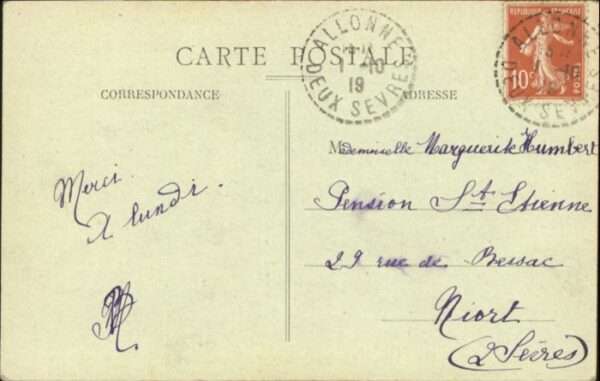 CARTE POSTALE
ALLONNE
1-10
19
DEUX SEVRES
RÉPUBLIQUE FRANÇAISE
10
POSTES
CORRESPONDANCE
ADRESSE
Merci.
A lundi.
Mademoiselle Marguerite Humbert
Pension St Etienne
29 rue de Bessac
Niort
(2 Sèvres)